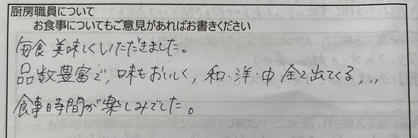 厨房職員について
お食事についてもご意見があればお書きください
毎食美味しくいただきました。
品数豊富で、味もおいしく、和・洋・中全て出てくる...
食事時間が楽しみでした。